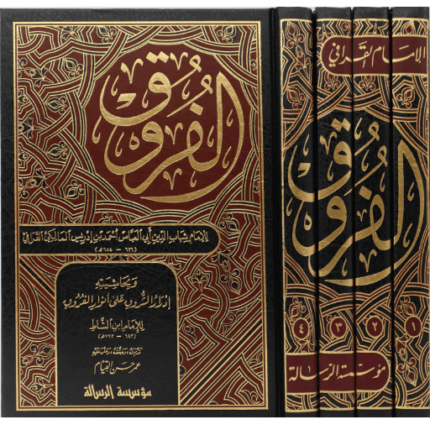 الفروق
للإمام شهاب الدين أبي العباس أحمد بن إدريس المالكي القرافي
(٦٢٦ - ٦٨٤هـ)
وبحاشيته
إدرار الشروق على أنوار الفروق
للإمام ابن الشاط
(٦٤٣ - ٧٢٣هـ)
عمر حسن القيام
مؤسسة الرسالة
الإمام القرافي
الفروق
٤ ٣ ٢ ١
مؤسسة الرسالة